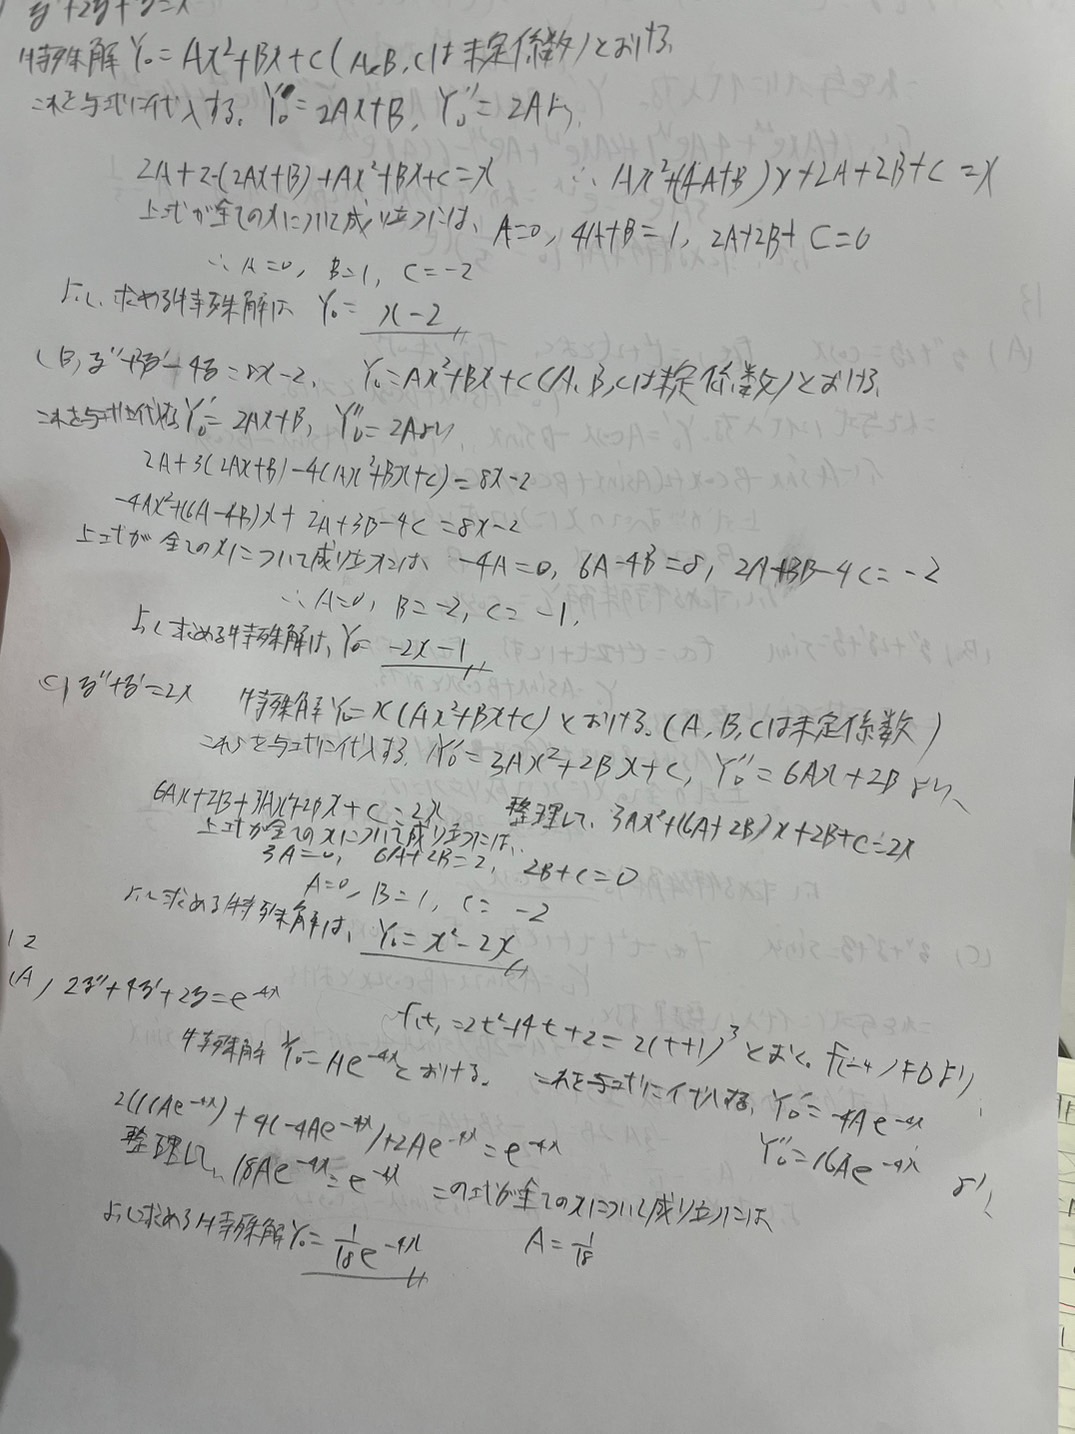 y''+2y'+y=x
特殊解 Y₀=Ax²+Bx+C(A,B,Cは未定係数)とおける。
これを与式に代入する。Y₀'=2Ax+B, Y₀''=2Aより、
2A+2・(2Ax+B)+Ax²+Bx+C=x ∴ Ax²+(4A+B)x+2A+2B+C=x
上式が全てのxについて成り立つには、A=0, 4A+B=1, 2A+2B+C=0
∴ A=0, B=1, C=-2
よって求める特殊解は Y₀=x-2
(B) y''+3y'-4y=8x-2. Y₀=Ax²+Bx+C(A,B,Cは未定係数)とおける。
これを与式に代入する Y₀'=2Ax+B, Y₀''=2Aより
2A+3(2Ax+B)-4(Ax²+Bx+C)=8x-2
-4Ax²+(6A-4B)x+2A+3B-4C=8x-2
上式が全てのxについて成り立つには -4A=0, 6A-4B=8, 2A+3B-4C=-2
∴ A=0, B=-2, C=-1,
よって求める特殊解は、Y₀=-2x-1
(C) y''+y'=2x 特殊解 Y₀=x(Ax²+Bx+C)とおける。(A,B,Cは未定係数)
これらを与式に代入する。Y₀'=3Ax²+2Bx+C, Y₀''=6Ax+2Bより、
6Ax+2B+3Ax²+2Bx+C=2x 整理して、3Ax²+(6A+2B)x+2B+C=2x
上式が全てのxについて成り立つには、
3A=0, 6A+2B=2, 2B+C=0
A=0, B=1, C=-2
よって求める特殊解は、Y₀=x²-2x
12
(A) 2y''+4y'+2y=e⁻⁴ˣ
f(t)=2t²+4t+2=2(t+1)³とおく。f(-4)≠0より、
特殊解 Y₀=Ae⁻⁴ˣとおける。これを与式に代入する。Y₀'=-4Ae⁻⁴ˣ
Y₀''=16Ae⁻⁴ˣ より
2(16Ae⁻⁴ˣ)+4(-4Ae⁻⁴ˣ)+2Ae⁻⁴ˣ=e⁻⁴ˣ
整理して、18Ae⁻⁴ˣ=e⁻⁴ˣ この式が全てのxについて成り立つには
A=1/18
よって求める特殊解 Y₀=1/18e⁻⁴ˣ